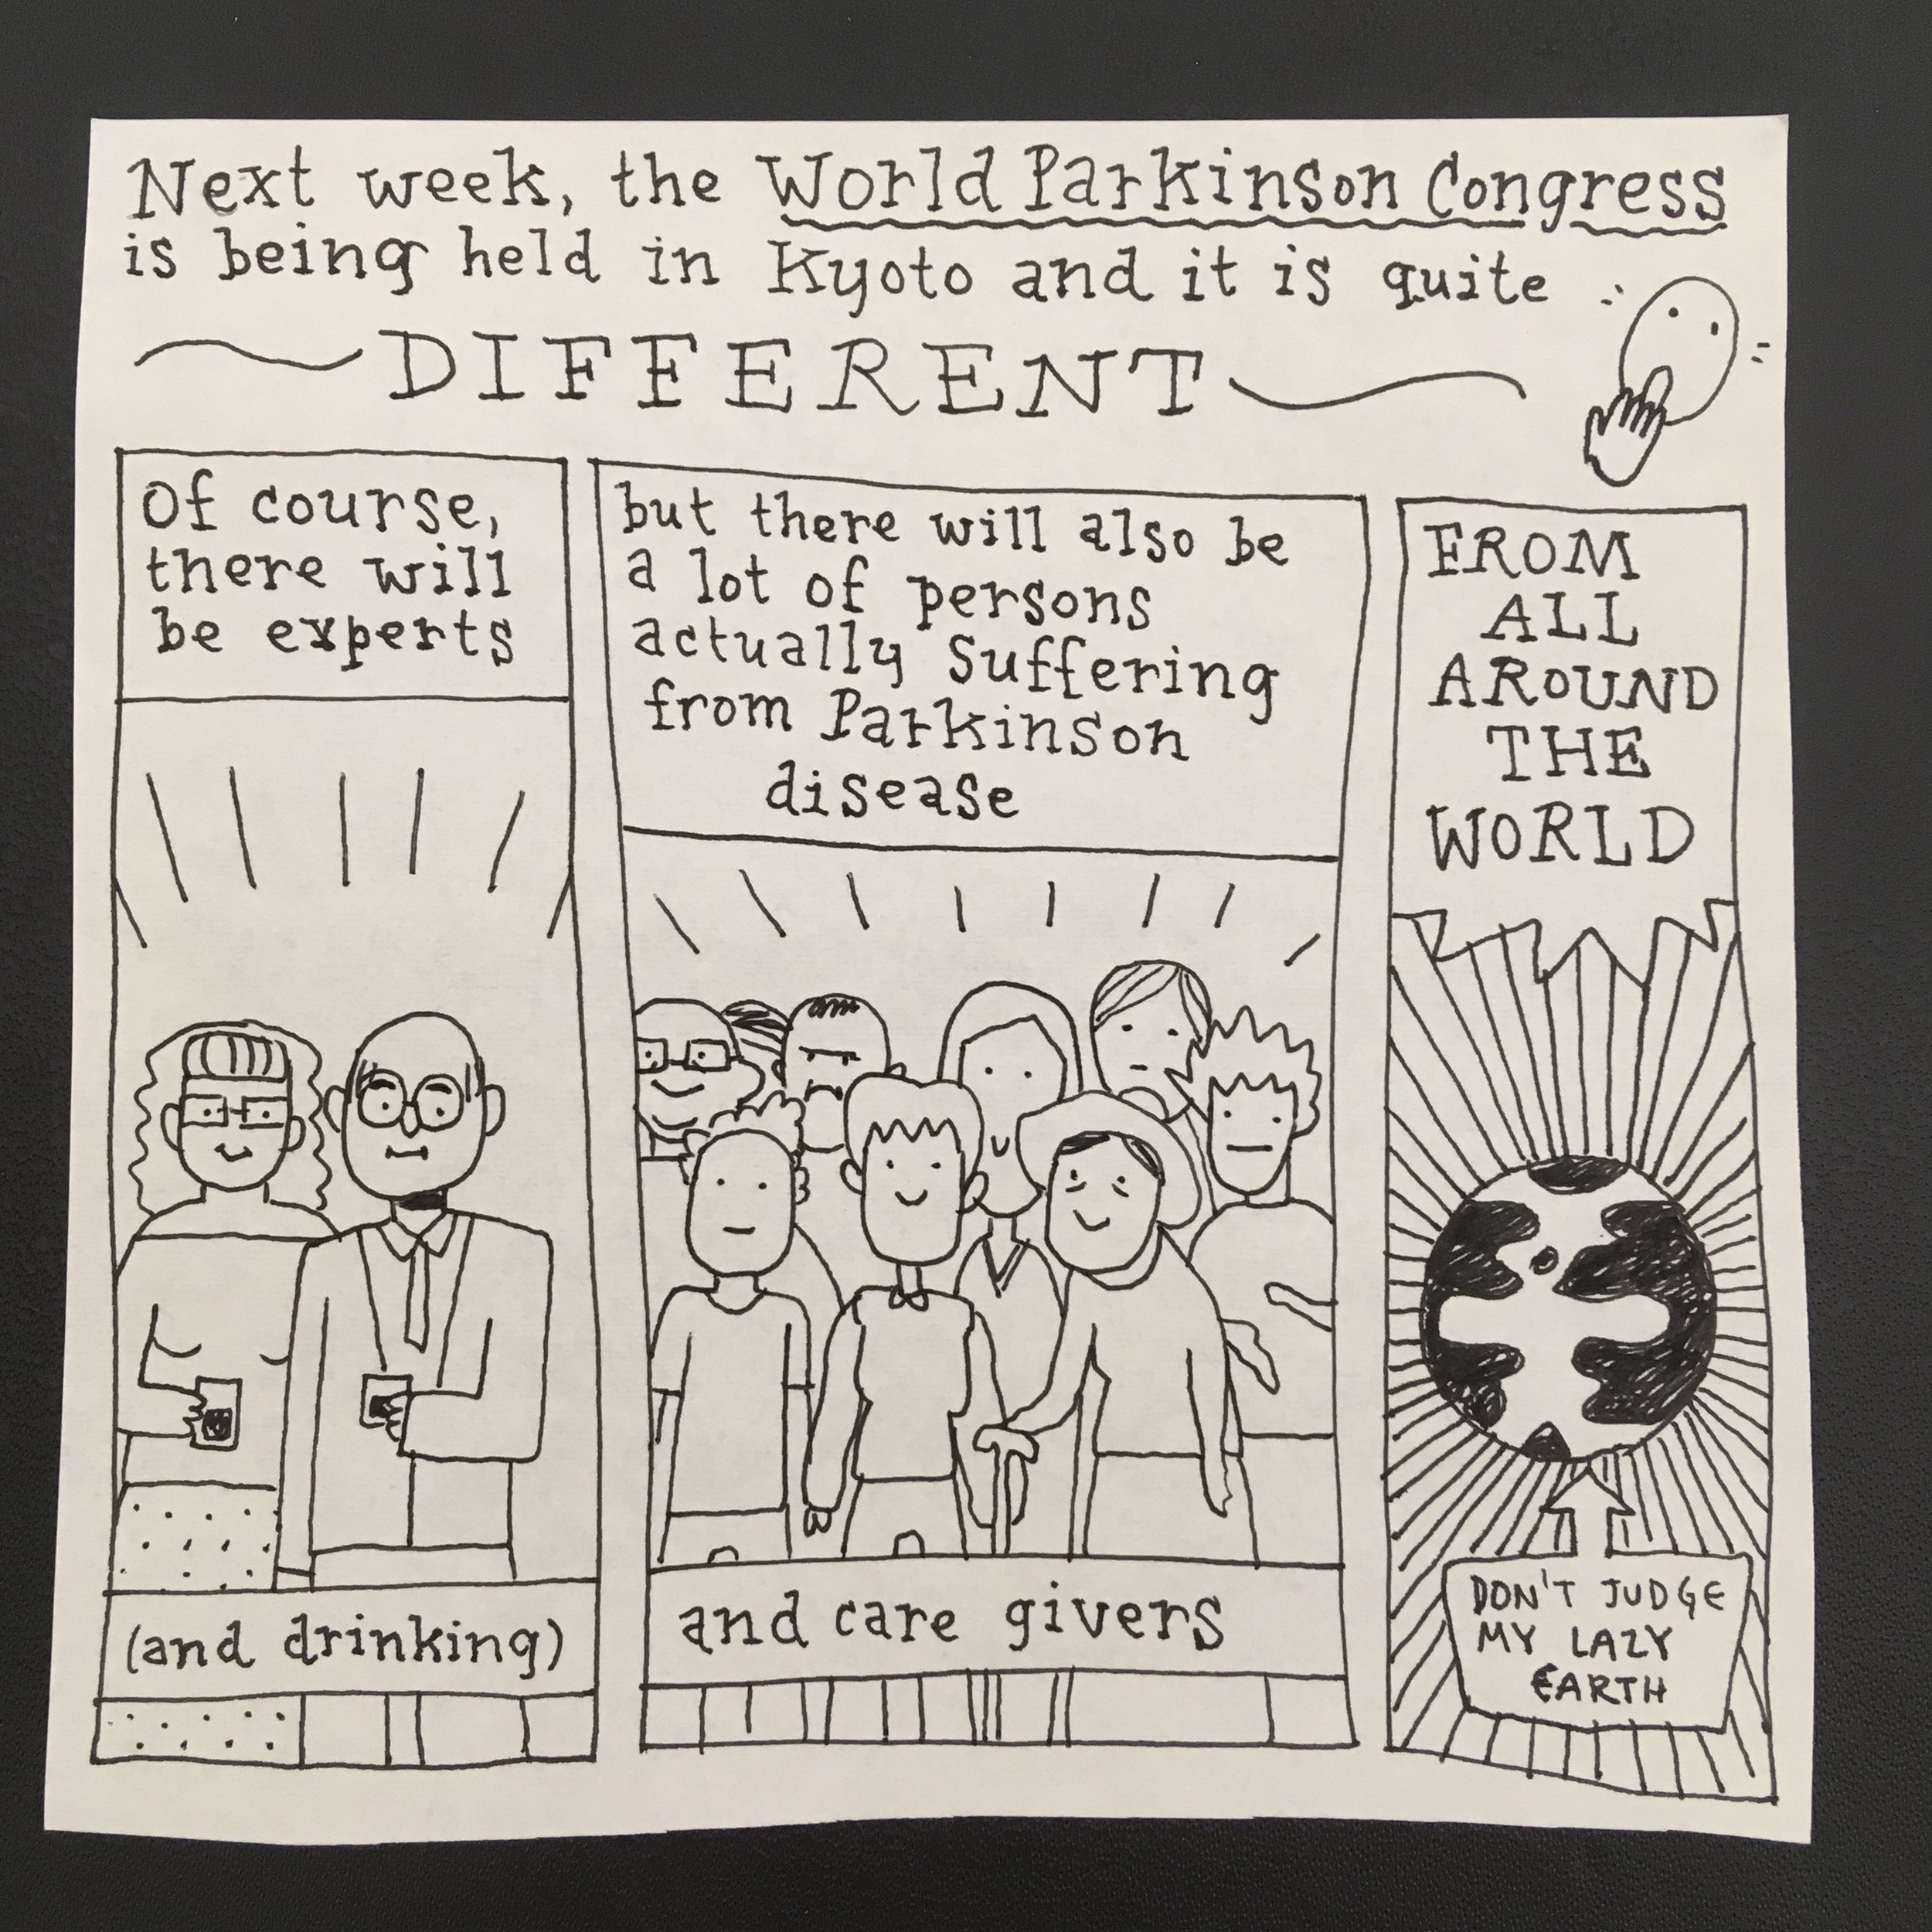 Next week, the World Parkinson Congress
is being held in Kyoto and it is quite
DIFFERENT
Of course,
there will
be experts
(and drinking)
but there will also be
a lot of persons
actually suffering
from Parkinson
disease
and care givers
FROM
ALL
AROUND
THE
WORLD
DON'T JUDGE
MY LAZY
EARTH